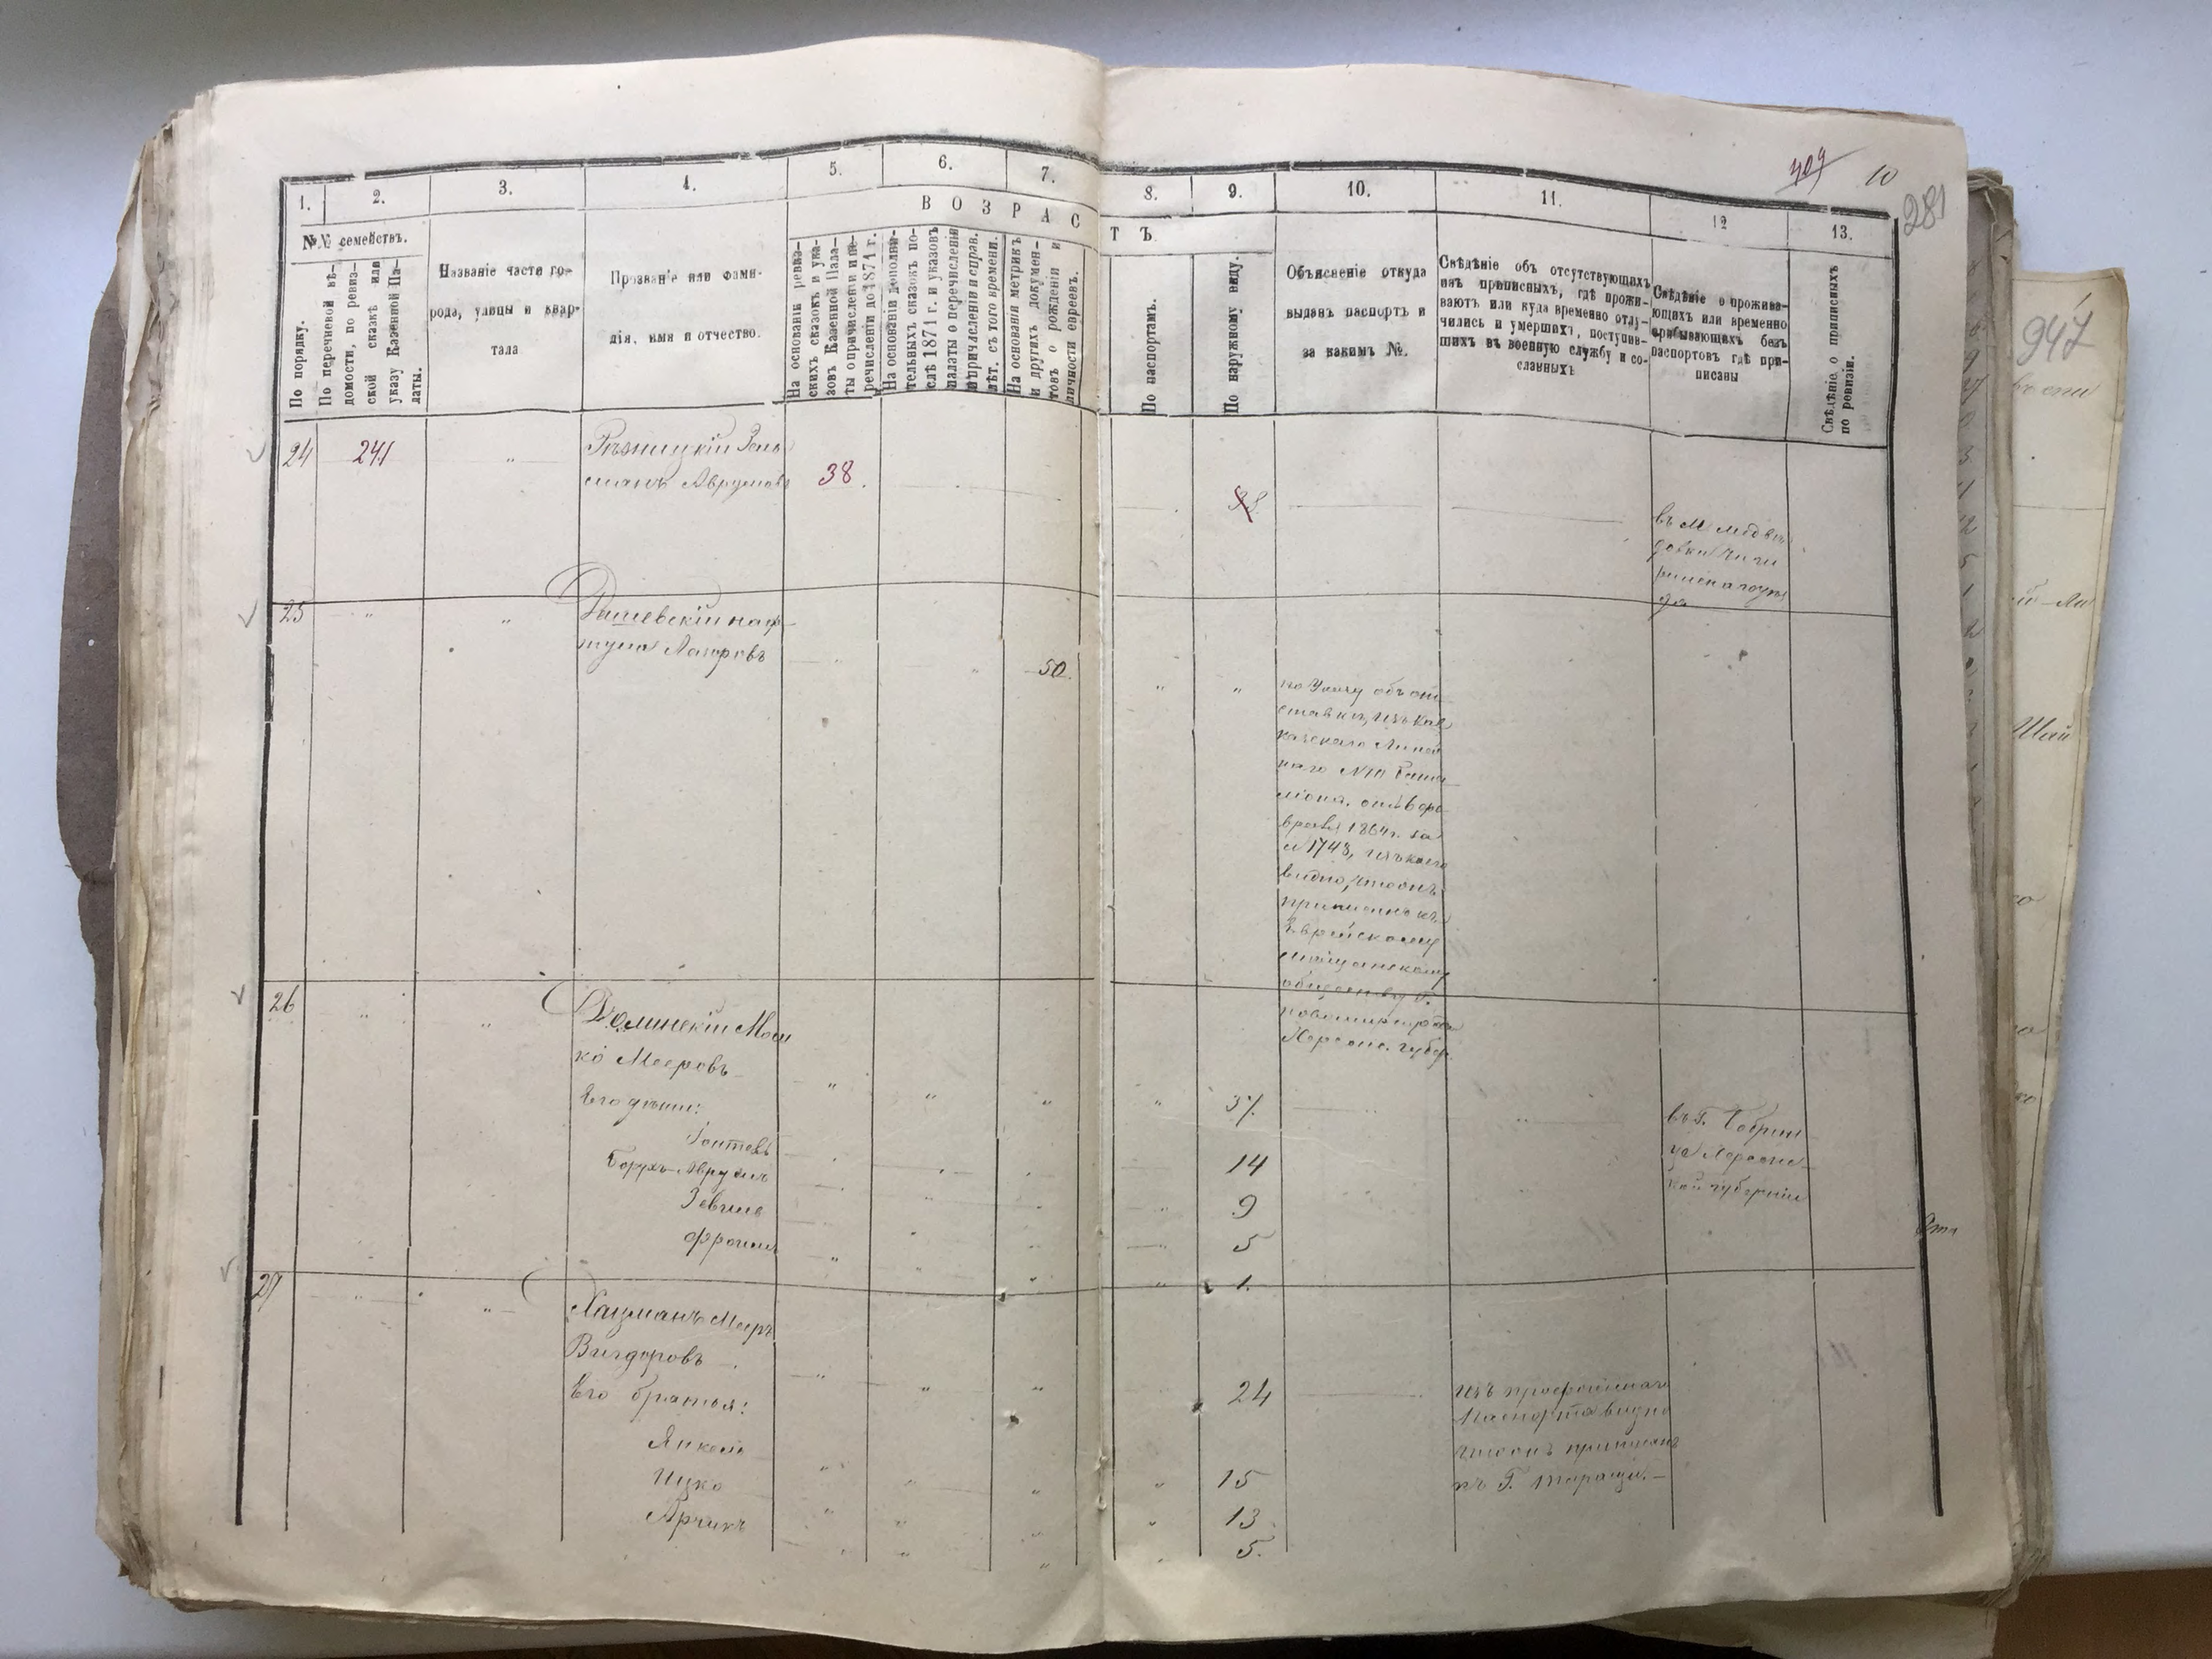 409 10
281
1. 2. 3. 4. 5. 6. 7. 8. 9. 10. 11. 12 13.
№№ семействъ.
По порядку.
По перечневой вѣ-
домости, по ревиз-
ской сказкѣ или
указу Казенной Па-
латы.
Названіе части го-
рода, улицы и квар-
тала
Прозваніе или фами-
лія, имя и отчество.
ВОЗРАСТЪ
На основаніи ревиз-
скихъ сказокъ и ука-
зовъ Казенной Пала-
ты о причисленіи и пе-
речисленіи до 1871 г.
На основаніи дополни-
тельныхъ сказокъ по-
слѣ 1871 г. и указовъ
палаты о перечисленіи
и причисленіи и справ.
лѣт. съ того времени.
На основаніи метрикъ
и другихъ докумен-
товъ о рожденіи и
личности евреевъ.
По паспортамъ.
По наружному виду.
Объясненіе откуда
выданъ паспортъ и
за какимъ №.
Свѣдѣніе объ отсутствующихъ
изъ приписныхъ, гдѣ прожи-
ваютъ или куда временно отлу-
чились и умершихъ, поступив-
шихъ въ военную службу и со-
сланныхъ
Свѣдѣніе о прожива-
ющихъ или временно
пребывающихъ безъ
паспортовъ гдѣ при-
писаны
Свѣдѣніе о приписныхъ
по ревизіи.
24 241 " Рѣзницкій Зель
манъ Аврумовъ 38.
38
въ М Медвѣ
довки Чиги
ринскаго уѣз
да
25 " " Рашевскій Наф-
тула Лазоровъ
" " 50.
" " по Указу объ от
ставкѣ, изъ Кав
казскаго Линей
наго № Бата
ліона, отъ 6 фе
враля 1864 г. за
№ 1748, изъ коего
видно, что онъ
приписанъ къ
Еврейскому
мѣщанскому
обществу Г.
Новомиргорода
Херсонс. губер.
26 " " Долинскій Мош
ко Мееровъ
Его дѣти:
Борухъ-Аврумъ
" " " " 37.
14
9
5
1.
въ Г. Бобрин
цѣ Херсонс-
кой губерніи
27 " " Хацманъ Меръ
Вигдоровъ.
Его братья:
Янкель
Ицко
Арчикъ
" " " 24
15
13
5.
изъ
Паспорта видно
что онъ приписанъ
къ Г. Таращи.-
947
Шай